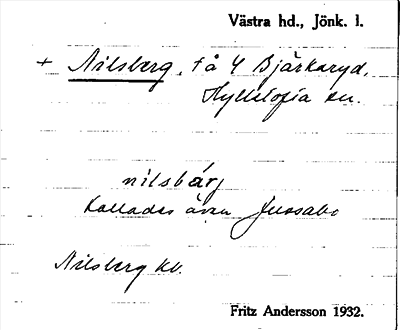 Västra hd., Jönk. l.
+ Nilsberg, få 4 Bjärkaryd,
Hylletofta sn.
nilsbärj
Kallades även Jussabo
Nilsberg kb.
Fritz Andersson 1932.